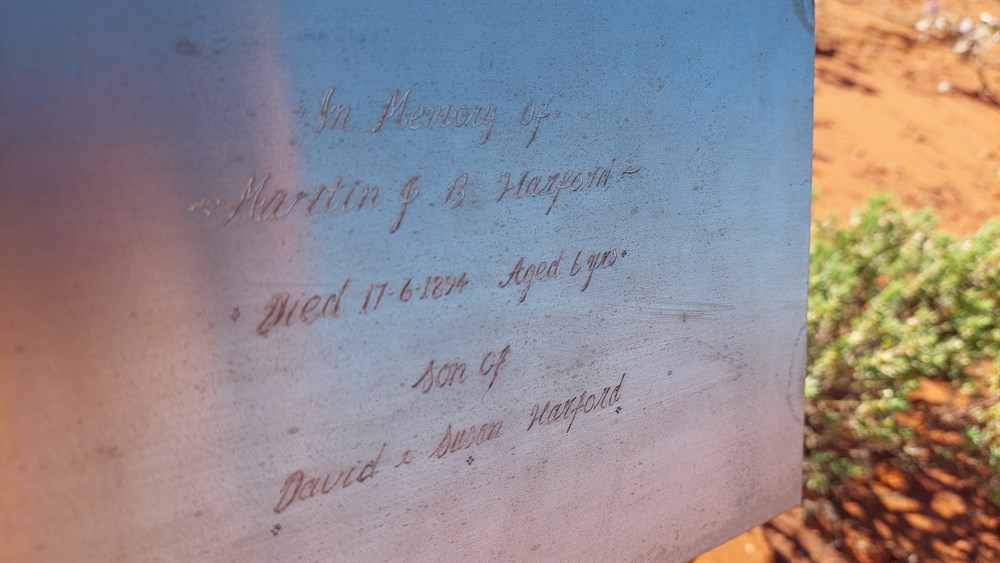 In Memory of
~ Martin J. B. Harford ~
Died 17-6-1894 Aged 6 yrs
son of
David & Susan Harford